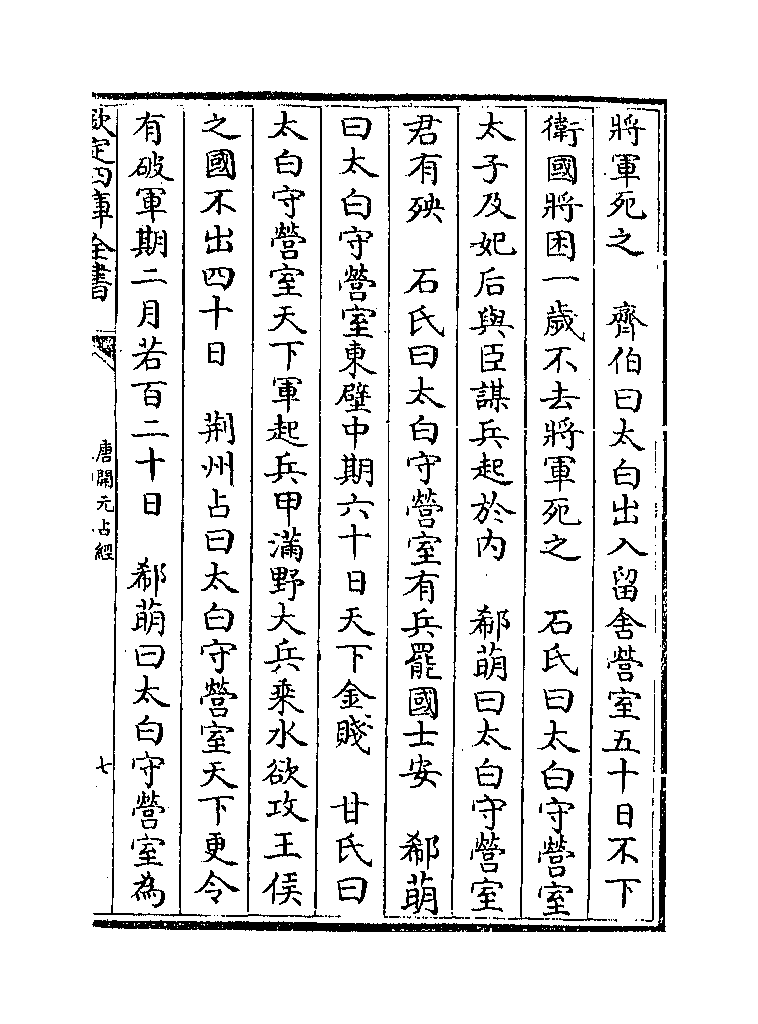 將軍死之　齊伯曰太白出入留舍營室五十日不下
衛國將困一歲不去將軍死之　石氏曰太白守營室
太子及妃后與臣謀兵起於内　郗萌曰太白守營室
君有殃　石氏曰太白守營室有兵罷國士安　郗萌
曰太白守營室東壁中期六十日天下金賤　甘氏曰
太白守營室天下軍起兵甲滿野大兵乘水欲攻王侯
之國不出四十日　荆州占曰太白守營室天下更令
有破軍期二月若百二十日　郗萌曰太白守營室為
欽定四庫全書　唐開元占經　七